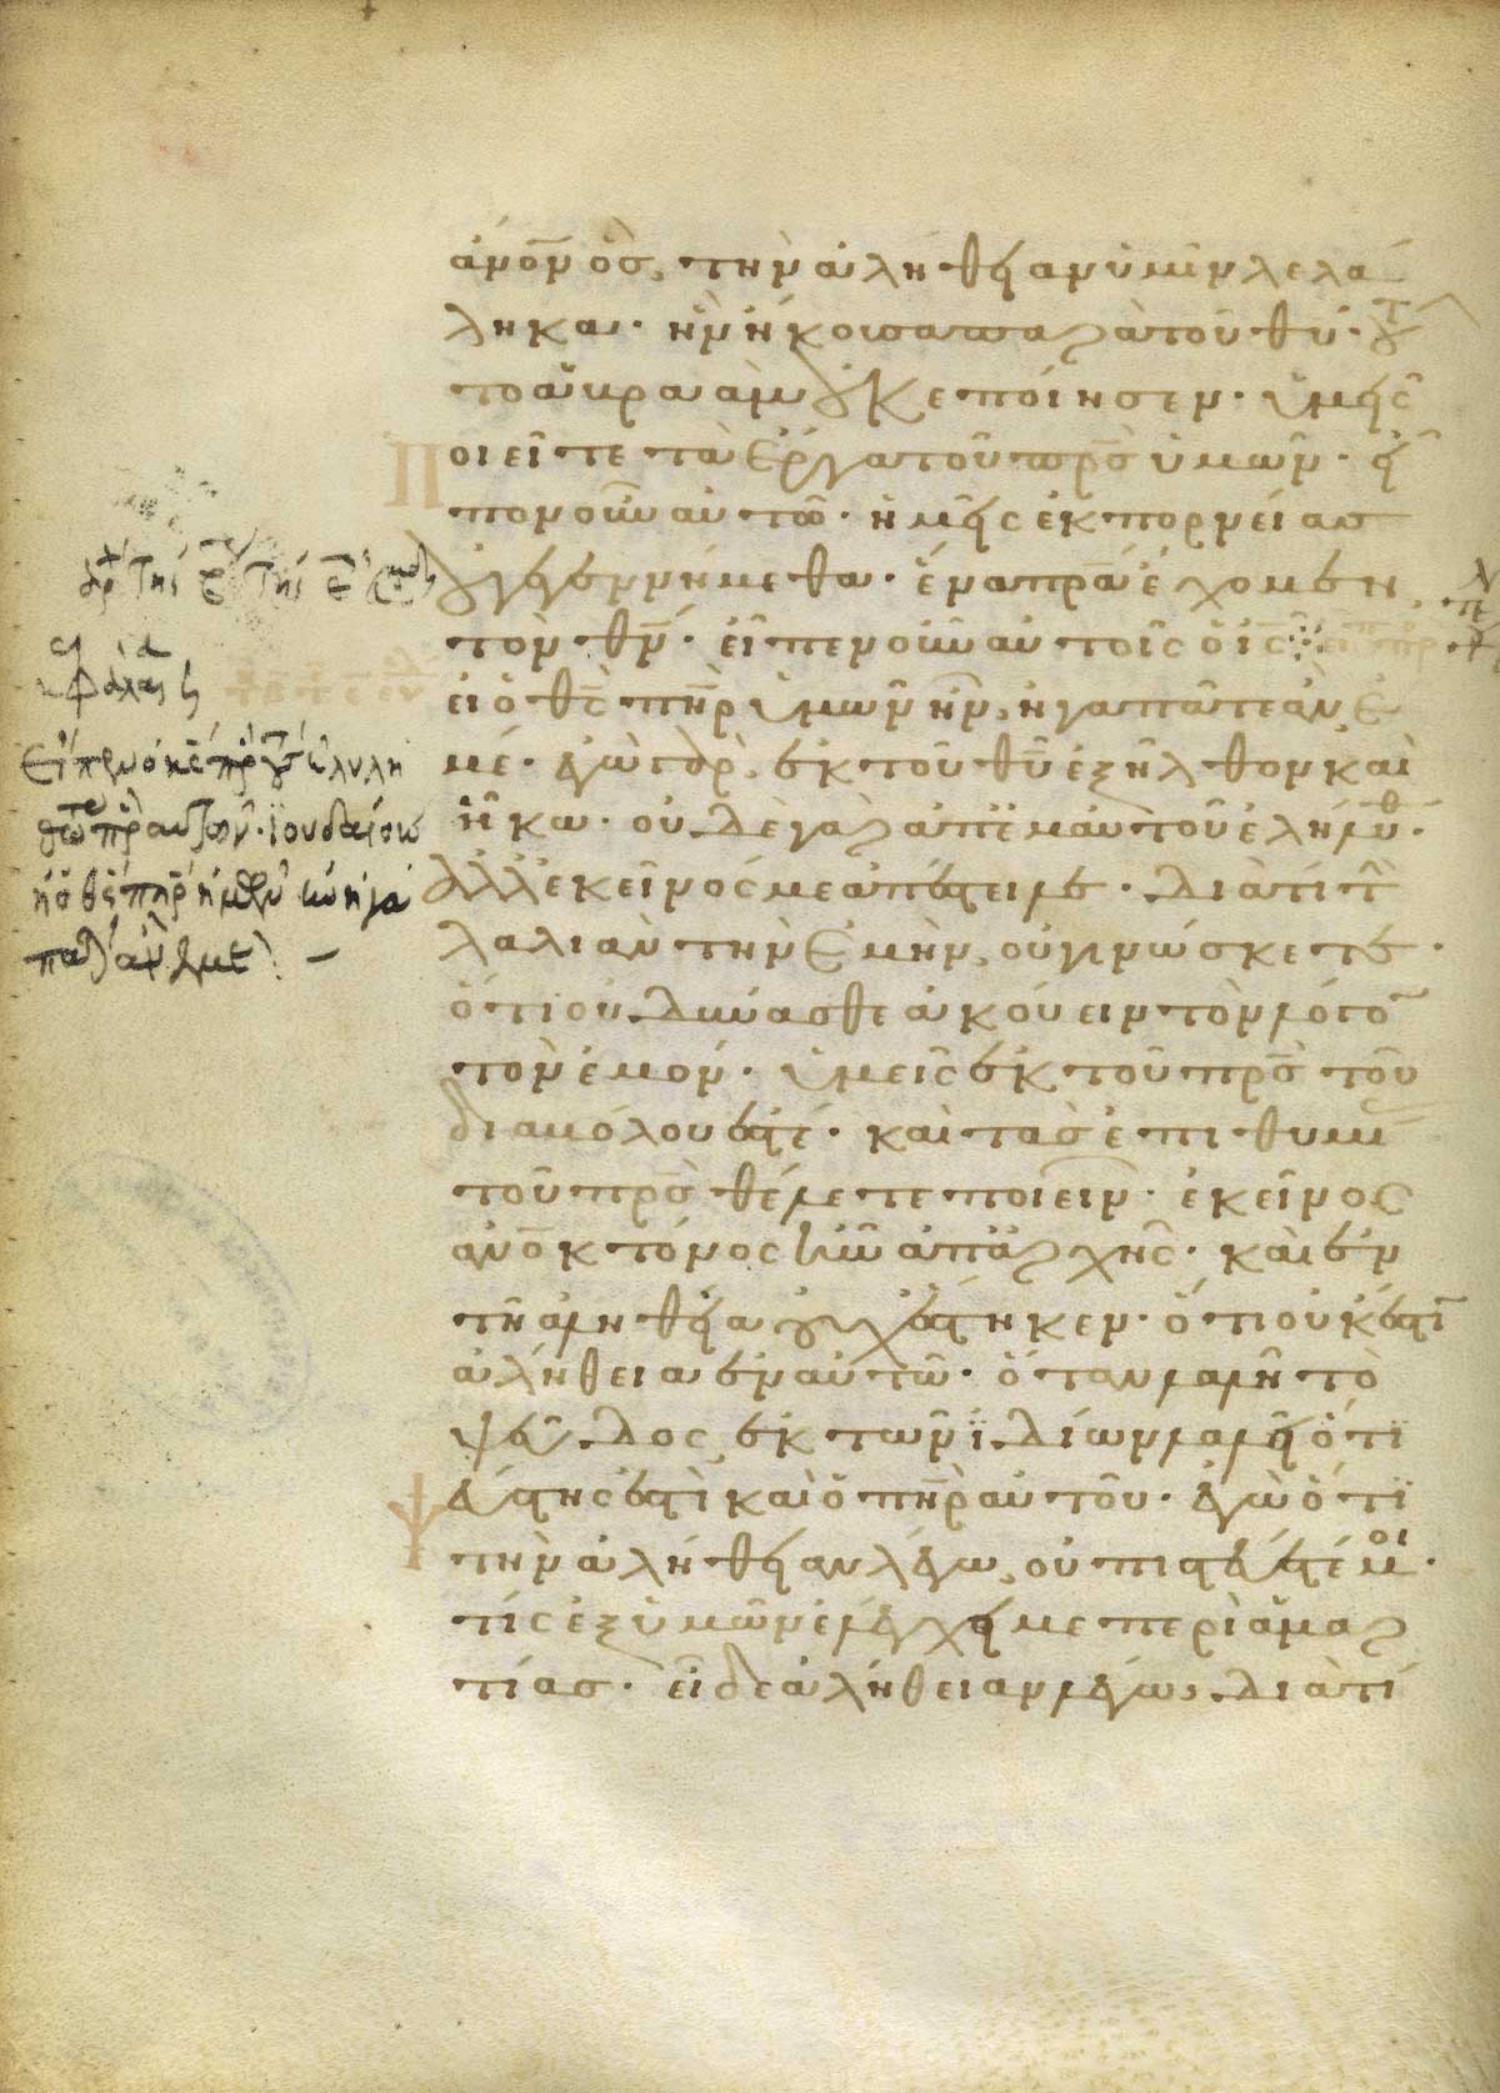 ἀνο̅ν ὃσ, τὴν ἀλήθειαν ὑμῖν λελά
ληκα· ἣν ἤκουσα παρὰ τοῦ θυ̅· τοῦ
το ἀβραὰμ οὐκ ἐποίησεν· ὑμεῖς
Ποιεῖτε τὰ ἔργα τοῦ πρσ̅ ὑμῶν· εἶ
πον οὖν αὐτῶ· ἡμεῖς ἐκ πορνείασ
οὐ γεγεννήμεθα· ἕνα πρα̅ ἔχομεν
τὸν θν̅· εἶπεν οὖν αὐτοῖς ὁ ις̅
εἰ ὁ θς̅ πηρ̅ ὑμῶν ἦν, ἠγαπᾶτε ἂν ἐ
μέ· ἐγὼ γὰρ, ἐκ τοῦ θυ̅ ἐξῆλθον καὶ
ἥκω· οὐδὲ γὰρ ἀπ' ἐμαυτοῦ ἐλήλυθ·
ἀλλ' ἐκεῖνός με ἀπέστειλε· διατί τὴ
λαλιὰν τὴν ἐμὴν, οὐ γινώσκετε·
ὅτι οὐ δύνασθε ἀκούειν τὸν λόγο
τὸν ἐμόν· ὑμεῖς ἐκ τοῦ πρσ̅ τοῦ
διαβόλου ἐστέ· καὶ τὰσ ἐπιθυμ
τοῦ πρσ̅ θέλετε ποιεῖν· ἐκεῖνος
ἀνο̅κτόνος ἦν ἀπ' ἀρχῆς· καὶ ἐν
τῆ ἀληθεία οὐχ ἕστηκεν· ὅτι οὐκ ἔστι
ἀλήθεια ἐν αὐτῶ· ὅταν λαλῆ τὸ
ψεῦδος, ἐκ τῶν ϊδίων λαλεῖ ὅτι
ψεύστης ἐστὶ καὶ ὁ πηρ̅ αὐτοῦ· ἐγὼ ὅτι
τὴν ἀλήθειαν λέγω, οὐ πιστεύετέ μοι·
τίς ἐξ ὑμῶν ἐλέγχει με περὶ ἁμαρ
τίασ· εἰ δὲ ἀλήθειαν λέγω, διατί
εἶπεν ὁ κς̅ πρὸς τοὺς ἐληλυ
θότας πρὸς αὐτὸν· ϊουδαίους
εἰ ὁ θς̅ πηρ̅ ἡμῶν ἦν ἠγα
πᾶτε ἂν ἐμέ –